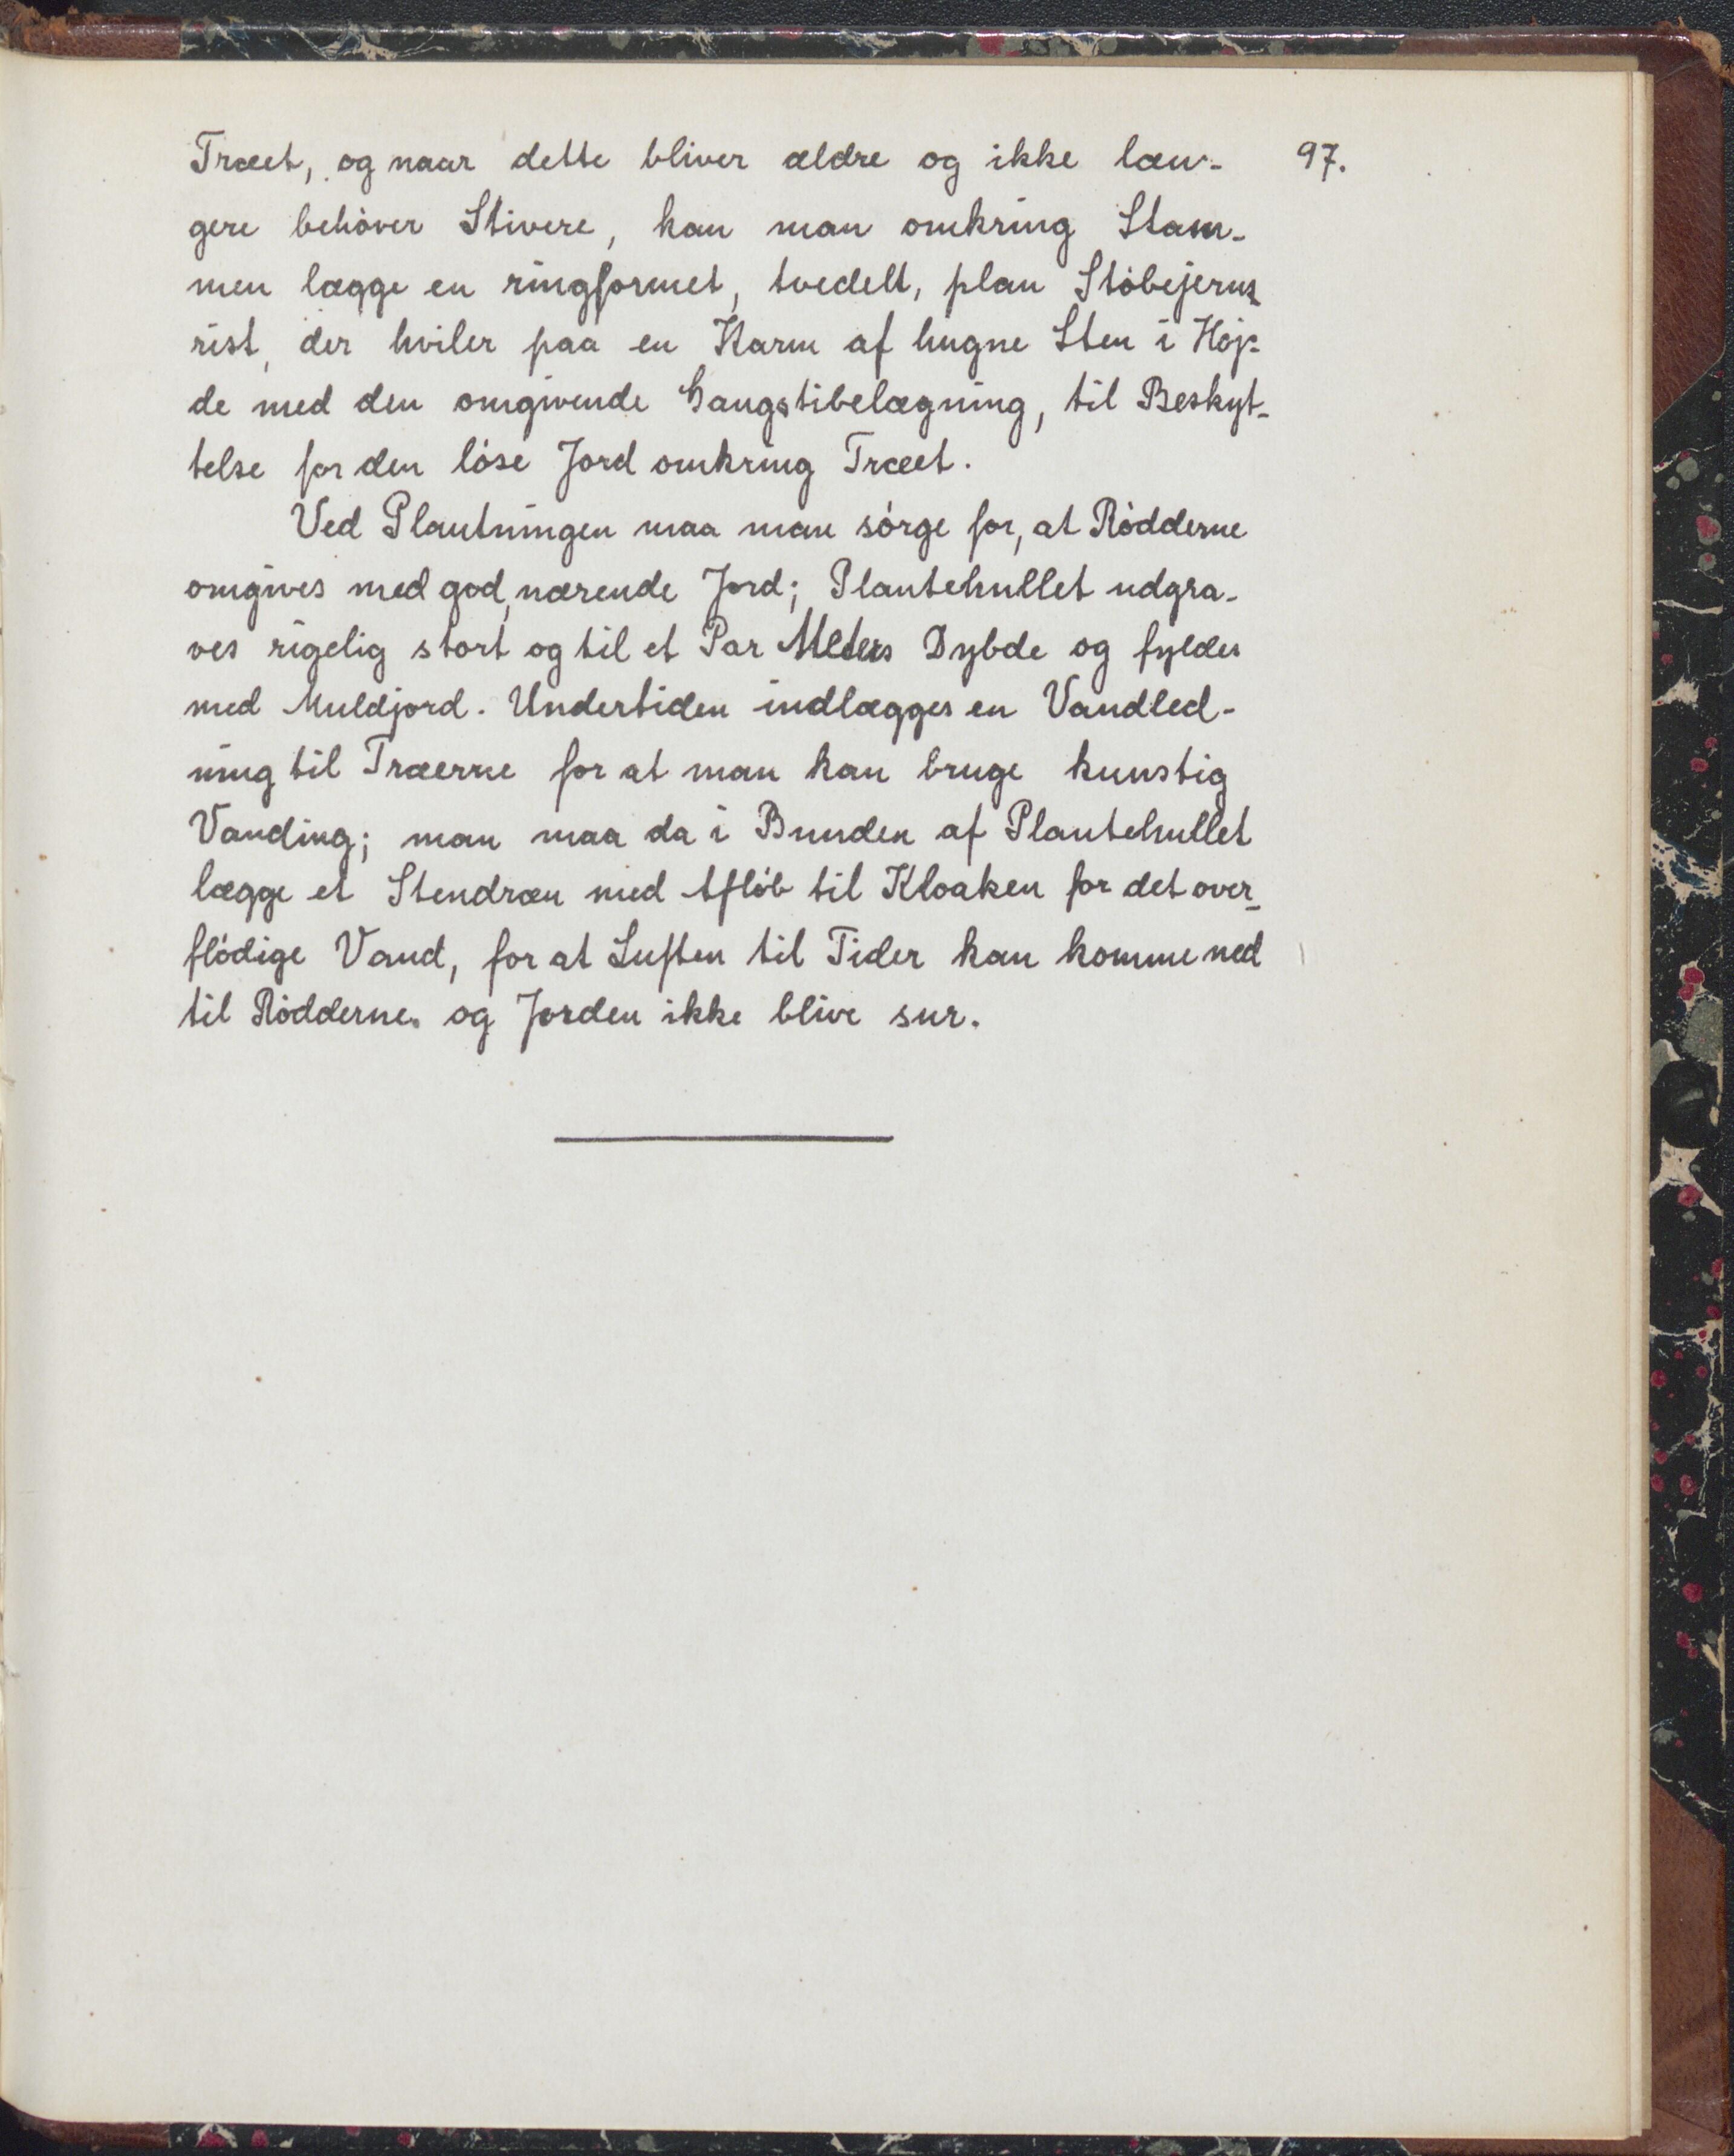 Træet, og naar dette bliver ældre og ikke læn- 97.
gere behöver Stivere, kan man omkring Stam-
men lægge en ringformet, tvedelt, plan Stöbejerns
rist, der hviler paa en Karm af hugne Sten i Höj-
de med den omgivende Gangstibelægning, til Beskyt-
telse for den löse Jord omkring Træet.
Ved Plantningen maa man sörge for, at Rödderne
omgives med god, nærende Jord; Plantehullet udgra-
ves rigelig stort og til et Par Meters Dybde og fyldes
med Muldjord. Undertiden indlægges en Vandled-
ning til Træerne for at man kan bruge kunstig
Vanding; man maa da i Bunden af Plantehullet
lægge et Stendræn med Aflöb til Kloaken for det over-
flödige Vand, for at Luften til Tider kan komme ned
til Rödderne. og Jorden ikke blive sur.